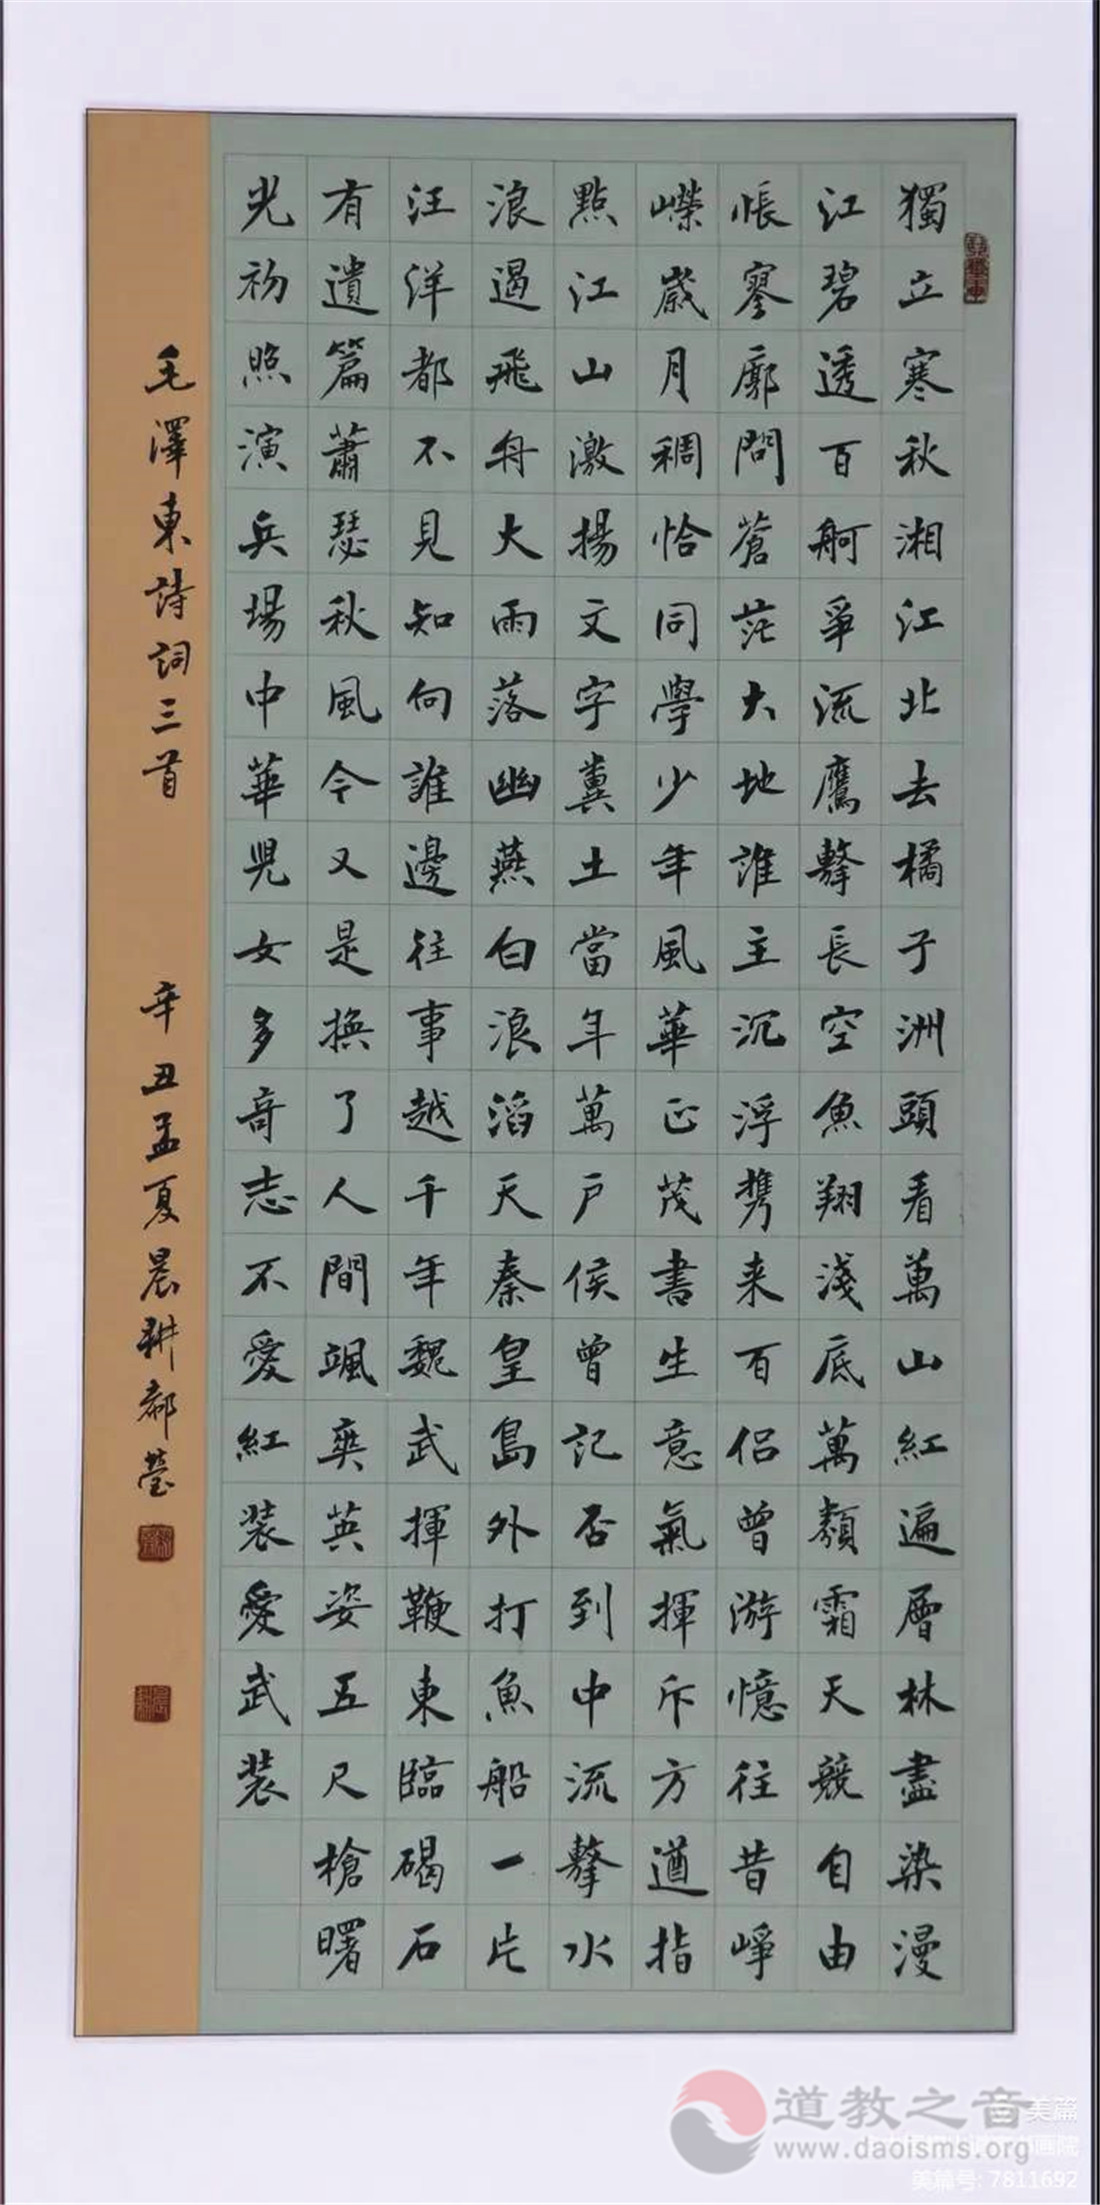 獨立寒秋湘江北去橘子洲頭看萬山紅遍層林盡染漫
江碧透百舸爭流鷹擊長空魚翔淺底萬類霜天競自由
悵寥廓問蒼茫大地誰主沉浮携来百侣曾游憶往昔崢
嶸歲月稠恰同學少年風華正茂書生意氣揮斥方遒指
點江山激揚文字糞土當年萬户侯曾記否到中流擊水
浪遏飛舟大雨落幽燕白浪滔天秦皇島外打魚船一片
汪洋都不見知向誰邊往事越千年魏武揮鞭東臨碣石
有遺篇蕭瑟秋風今又是換了人間颯爽英姿五尺槍曙
光初照演兵場中華兒女多奇志不愛紅装愛武装
毛澤東詩詞三首
辛丑孟夏晨耕郝莹
道教之音
www.daoisms.org
美篇
美篇号: 7811692